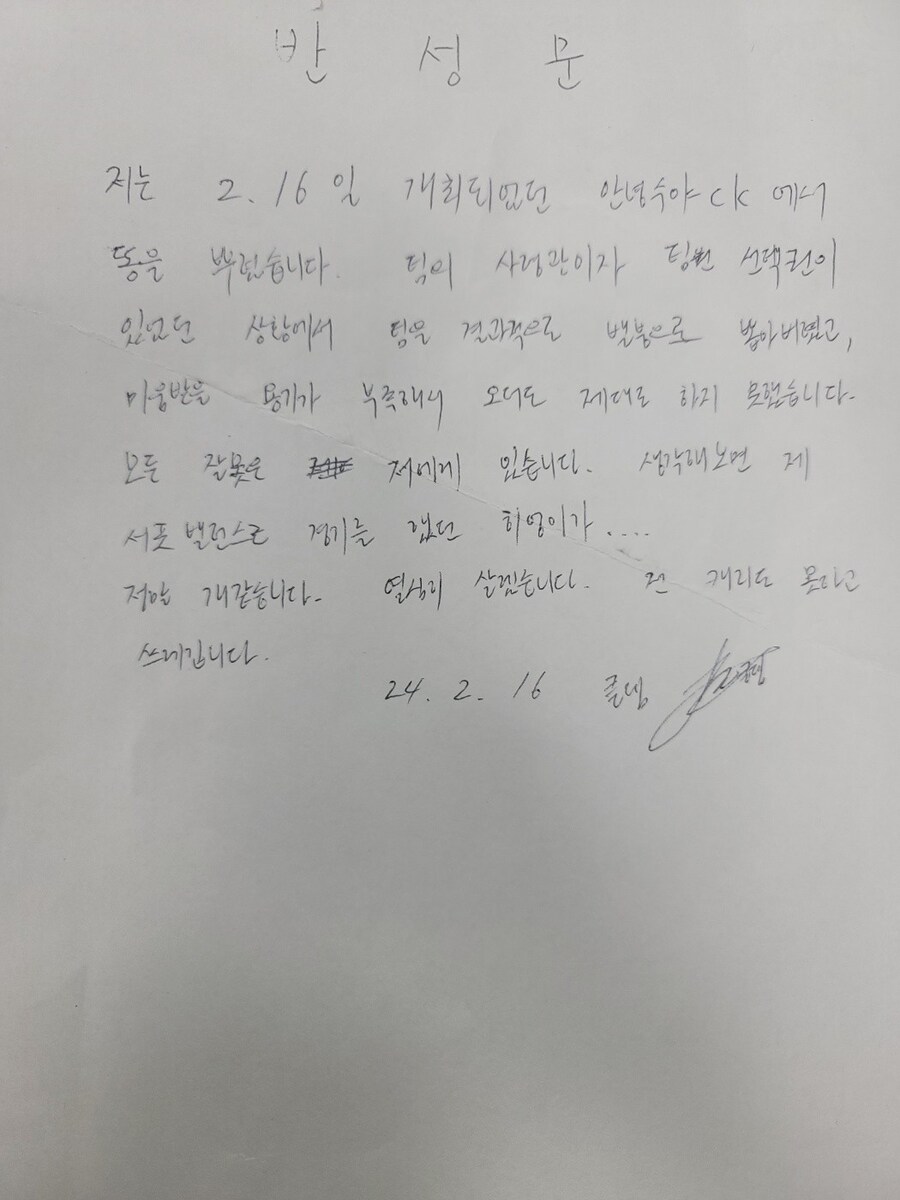 반 성 문
저는 2. 16 일 개최되었던 안녕수야ck 에서
똥을 뿌렸습니다. 팀의 사령관이자 팀원 선택권이
있었던 상황에서 팀을 결과적으로 밸붕으로 뽑아버렸고,
미움받을 용기가 부족해서 오더도 제대로 하지 못했습니다.
모든 잘못은 저에게 있습니다. 생각해보면 제
서폿 밸런스로 경기를 했던 히영이가.....
정말 개같습니다. 열심히 살겠습니다. 전 캐리도 못하고
쓰레깁니다.
24. 2. 16 클넴